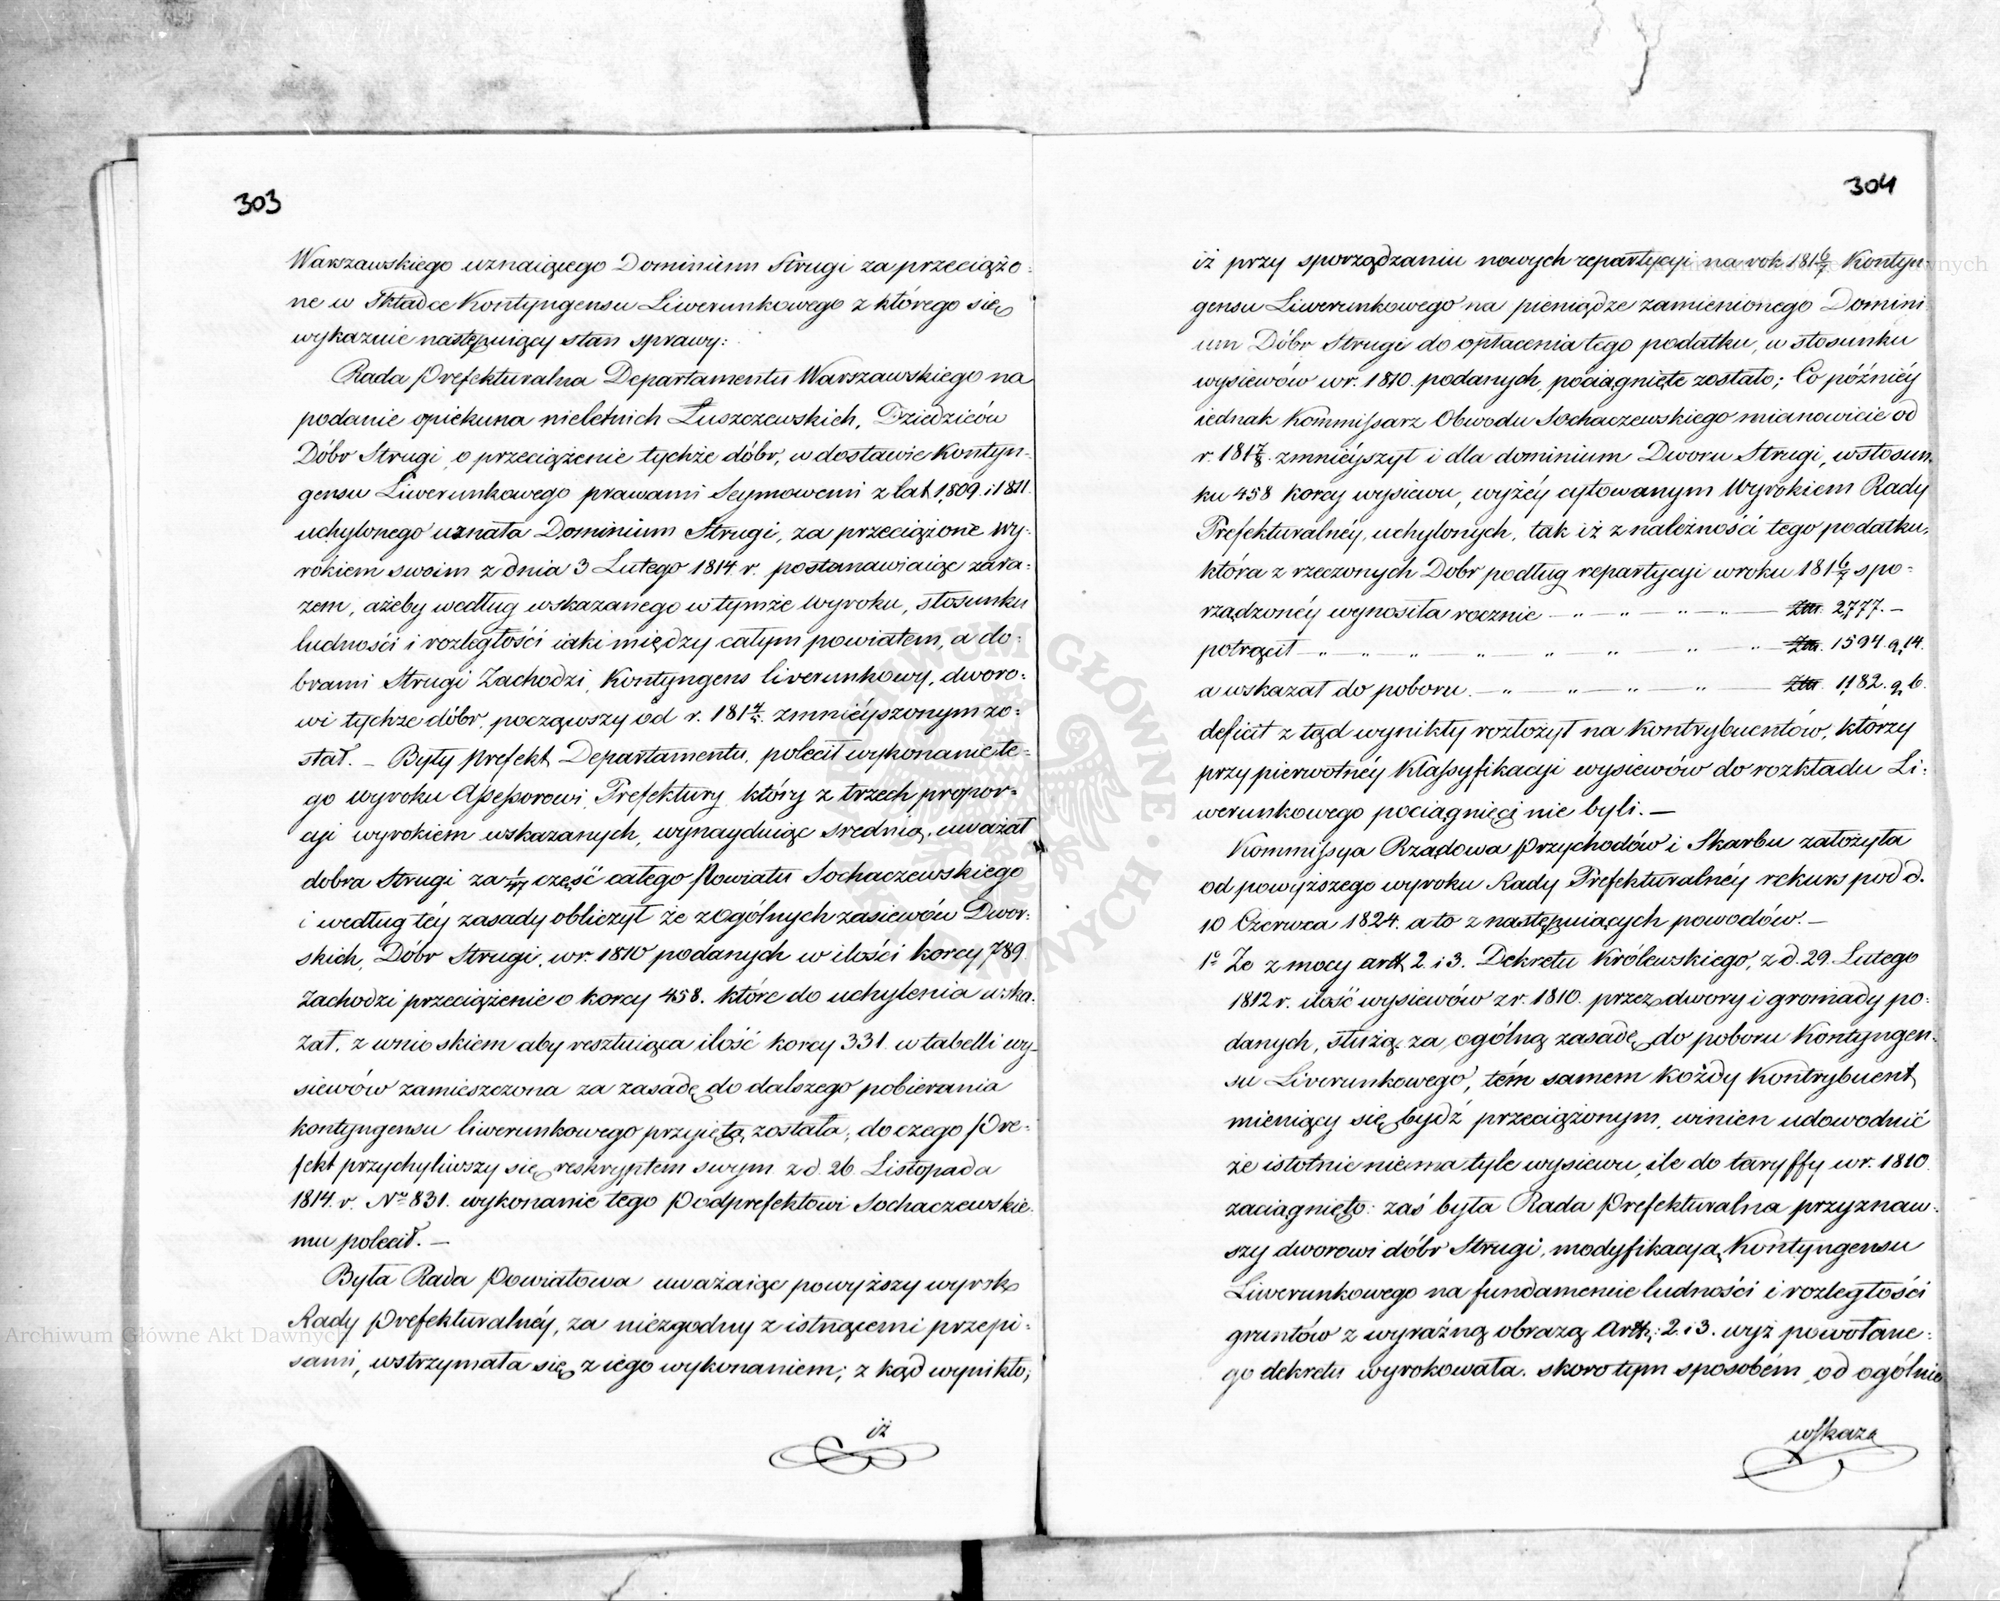 303
Warszawskiego uznaiącego Dominium Strugi za przeciążo-
ne w Składce Kontyngensu Liwerunkowego z którego się
wykazuie następuiący stan sprawy:
Rada Prefekturalna Departamentu Warszawskiego na
podanie opiekuna nieletnich Łuszczewskich, Dziedziców
Dóbr Strugi, o przeciążenie tychże dóbr, w dostawie Kontyn-
gensu Liwerunkowego prawami Seymowemi z lat 1809. i 1811.
uchylonego uznała Dominium Strugi, za przeciążone wy-
rokiem swoim z dnia 3 Lutego 1814. r. postanawiaiąc zara-
zem, ażeby według wskazanego w tymże wyroku, stosunku
ludności i rozległości iaki między całym powiatem, a do-
brami Strugi Zachodzi, Kontyngens liverunkowy, dworo-
wi tychże dóbr, począwszy od r. 181 4/5. zmnieyszonym zo-
stał. – Były Prefekt Departamentu, polecił wykonanie te-
go wyroku Assessorowi Prefektury, który z trzech propor-
cji wyrokiem wskazanych, wynayduiąc srednią, uważał
dobra Strugi za część całego Powiatu Sochaczewskiego
i według téy zasady obliczył że z ogólnych zasiewów Dwor-
skich, Dóbr Strugi, w r. 1810 podanych w ilości korcy 789.
Zachodzi przeciążenie o korcy 458. które do uchylenia wska-
zał, z wnioskiem aby resztuiąca ilość korcy 331. w tabelli wy-
siewów zamieszczona za zasadę do dalszego pobierania
kontyngensu liwerunkowego przyiętą została; do czego Pre-
fekt przychyliwszy się, reskryptem swym z d. 26 Listopada
1814. r. No 831. wykonanie tego Podprefektowi Sochaczewskie-
mu polecił. –
Była Rada Powiatowa uważaiąc powyższy wyrok
Rady Prefekturalnéy, za niezgodny z istnącemi przepi-
sami, wstrzymała się z iego wykonaniem; z kąd wynikło;
iż
304
iż przy sporządzaniu nowych repartycyi na rok 181 6/7 Kontyn-
gensu Liwerunkowego na pieniądze zamienionego Domini
um Dóbr Strugi do opłacenia tego podatku, w stosunku
wysiewów w r. 1810. podanych, pociągnięte zostało; Co późniéy
iednak Kommissarz Obwodu Sochaczewskiego mianowicie od
r. 181 7/8. zmniéyszył i dla dominium Dworu Strugi, w stosun-
ku 458 korcy wysiewu, wyżéy cytowanym Wyrokiem Rady
Prefekturalnéy, uchylonych, tak iż z należności tego podatku,
która z rzeczonych Dobr podług repartycyi w roku 181 6/7 spo-
rządzonéy wynosiła rocznie — " — " — " — " — 2,777. –
potrącił — " — " — " — " — " — " — " — " — 1594. g. 14.
a wskazał do poboru. — " — " — " — " — 1,182. g. 16.
deficit z tąd wynikły rozłożył na Kontrybuentów, którzy
przy pierwotnéy Klassyfikacyi wysiewów do rozkładu Li-
werunkowego pociągnięci nie byli. –
Kommissya Rządowa Przychodów i Skarbu założyła
od powyższego wyroku Rady Prefekturalnéy rekurs pod d.
10 Czerwca 1824. a to z następuiących powodów. –
1o Że z mocy artt. 2. i 3. Dekretu Królewskiego, z d. 29. Lutego
1812 r. ilość wysiewów z r. 1810. przez dwory i gromady po-
danych, służą za ogólną zasadę do poboru Kontyngen-
su Liverunkowego, tém samem Każdy Kontrybuent
mieniący się bydź przeciążonym, winien udowodnić
że istotnie niema tyle wysiewu, ile do taryffy w r. 1810.
zaciągnięto: zaś była Rada Prefekturalna przyznaw-
szy dworowi dóbr Strugi, modyfikacyą Kontyngensu
Liwerunkowego na fundamencie ludności i rozległości
gruntów z wyraźną obrazą Artt: 2. i 3. wyż powołane-
go dekretu wyrokowała. skoro tym sposobém, od ogólnie
wskaza